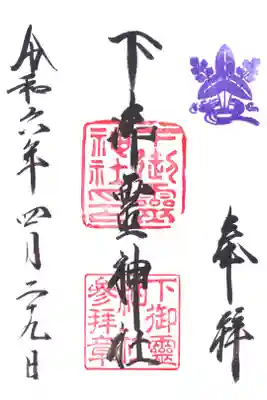 奉拝
下御霊神社
下御靈神社印
下御靈神社参拝章
令和六年四月二十九日